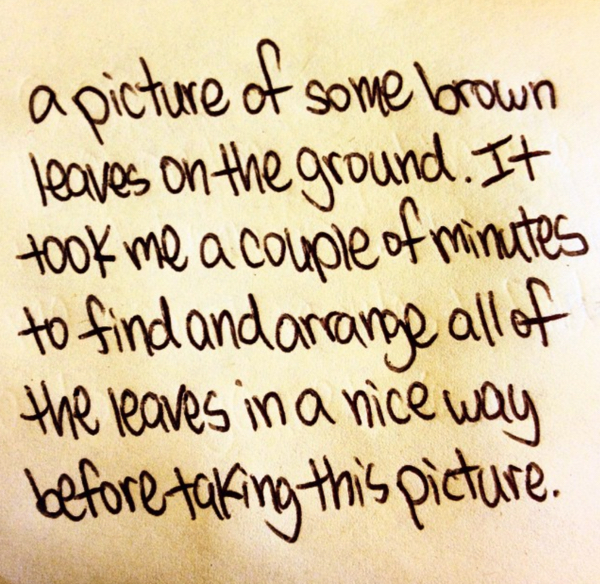 a picture of some brown
leaves on the ground. It
took me a couple of minutes
to find and arrange all of
the leaves in a nice way
before taking this picture.